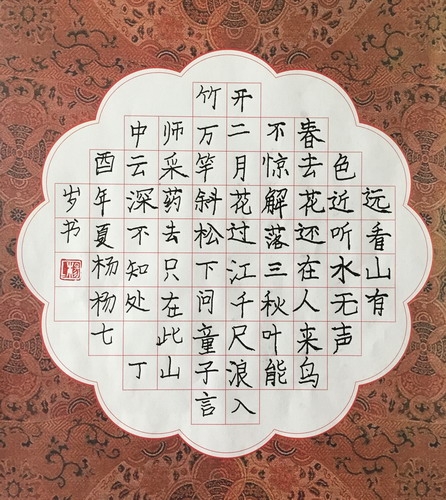 远看山有
色近听水无声
春去花还在人来鸟
不惊解落三秋叶能
开二月花过江千尺浪入
竹万竿斜松下问童子言
师采药去只在此山
中云深不知处丁
酉年夏杨杨七
岁书